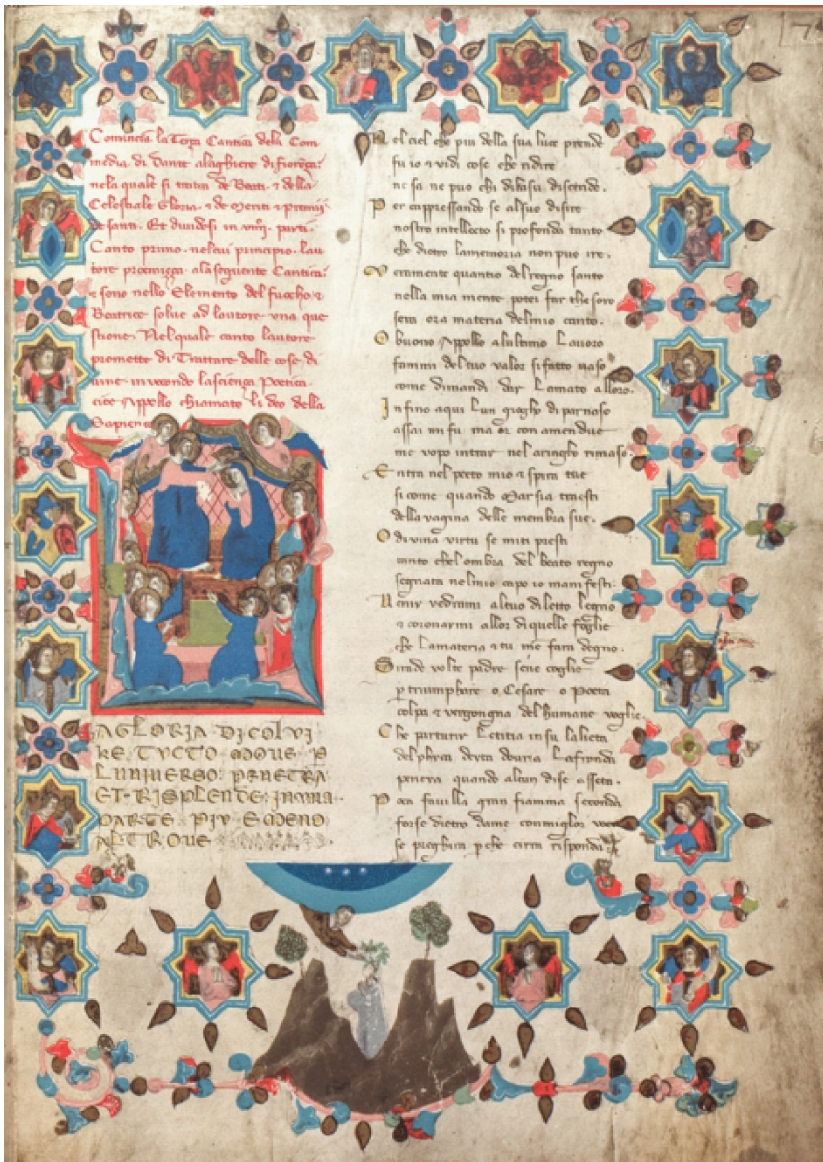 17
Comincia la Terça Cantica dela Com
media di Dante alaghiere di fiorença
nela quale si tratta de Beati. & della
Celestiale Gloria. & de meriti & premij
de santi. Et dividesi in viiij. parti.
Canto primo. nelcui principio. lau
tore proemiçça. ala seguente Cantica.
& sono nello Elemento del fuocho &
Beatrice solve ad lautore una que
stione. Nel quale canto lautore
promette di Trattare delle cose di
uine invocando la sciença Poetica
cioe Appollo chiamato li deo della
Sapiença
AGLORIA DI COLVI
KE TVCTO MOVE P
LUNIVERSO: PENETRA
ET RISPLENDE: IN UNA
PARTE PIV E MENO
ALTROVE
Nel ciel che piu della sua luce prende
fu io & vidi cose che ridire
ne sa ne puo chi di lasu discende.
Per cappressando se alsuo disire
nostro intellecto si profonda tanto
che dietro lamemoria non puo ire.
Veramente quantio del regno santo
nella mia mente potei far thesoro
sera ora materia delmio canto.
O buono Appollo alultimo Lauoro
fammi del tuo valor si fatto uaso
come dimandi dar Lamato alloro.
Infino aqui Lun giogho di parnaso
assai mi fu ma or con amendue
me vopo intrar nel aringho rimaso
Entra nel pecto mio & spira tue
si come quando Marsia traesti
della vagina delle membra sue.
O divina virtu se miti presti
tanto chel ombra del beato regno
segnata nelmio capo io manifesti.
Venir vedrami altuo diletto Legno
& coronarmi allor di quelle foglie
che Lamateria & tu me fara degno.
Si rade volte padre sene coglie
p triumphare o Cesare o Poeta
colpa & vergongna del humane voglie
Che parturir Letitia insu lalieta
delphica deita douria Lafronda
peneia quando alcun dise asseta.
Poca favilla gran fiamma seconda
forse dietro dame con miglor voci
se preghira p che cirra risponda